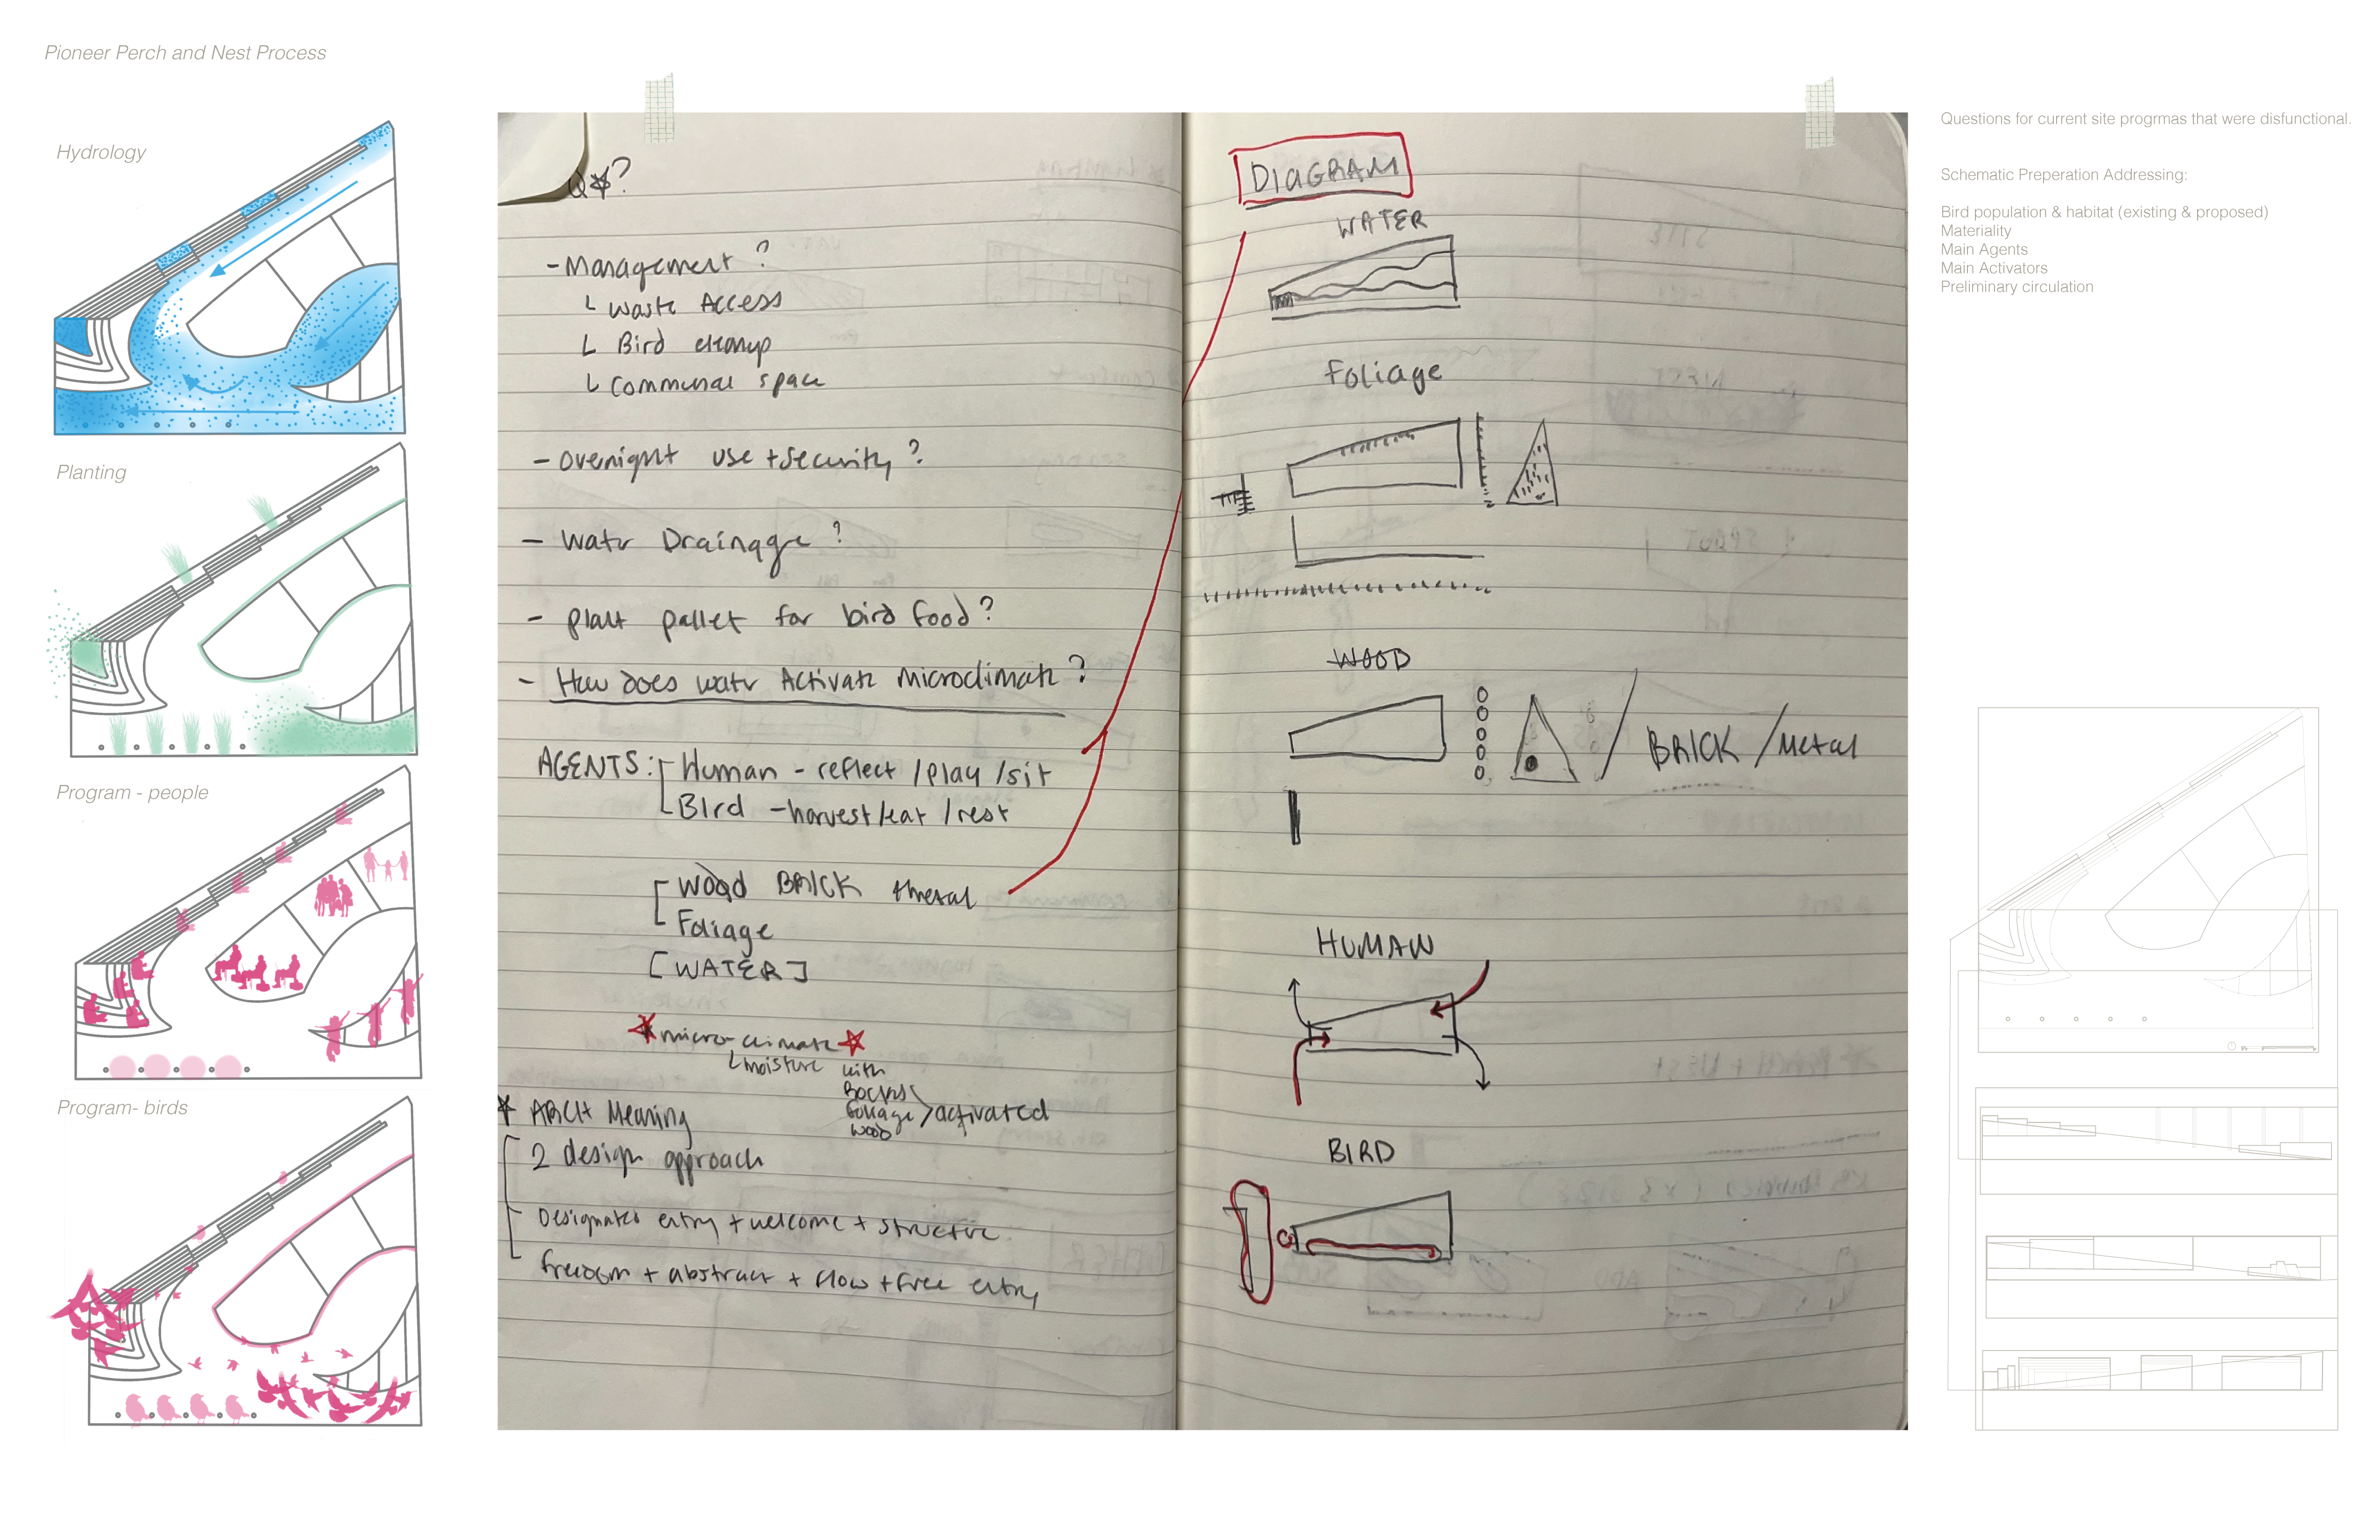 Pioneer Perch and Nest Process
Hydrology
Planting
Program - people
Program- birds
Q*?
- Management ?
Waste Access
Bird cleanup
Communal space
- Overnight use + Security ?
- Water Drainage ?
- Plant pallet for bird food ?
- How does water Activate Microclimate ?
AGENTS: Human - reflect / play / sit
Bird - harvest / eat / rest
Wood BRICK + metal
Foliage
[WATER]
micro-climate
moisture with
Rocks
foliage > activated
wood
* ARCH Meaning
2 design approach
Designated entry + welcome + structure
freedom + abstract + flow + free entry
DIAGRAM
WATER
Foliage
WOOD
/ BRICK / Metal
HUMAN
BIRD
Questions for current site progrmas that were disfunctional.
Schematic Preperation Addressing:
Bird population & habitat (existing & proposed)
Materiality
Main Agents
Main Activators
Preliminary circulation